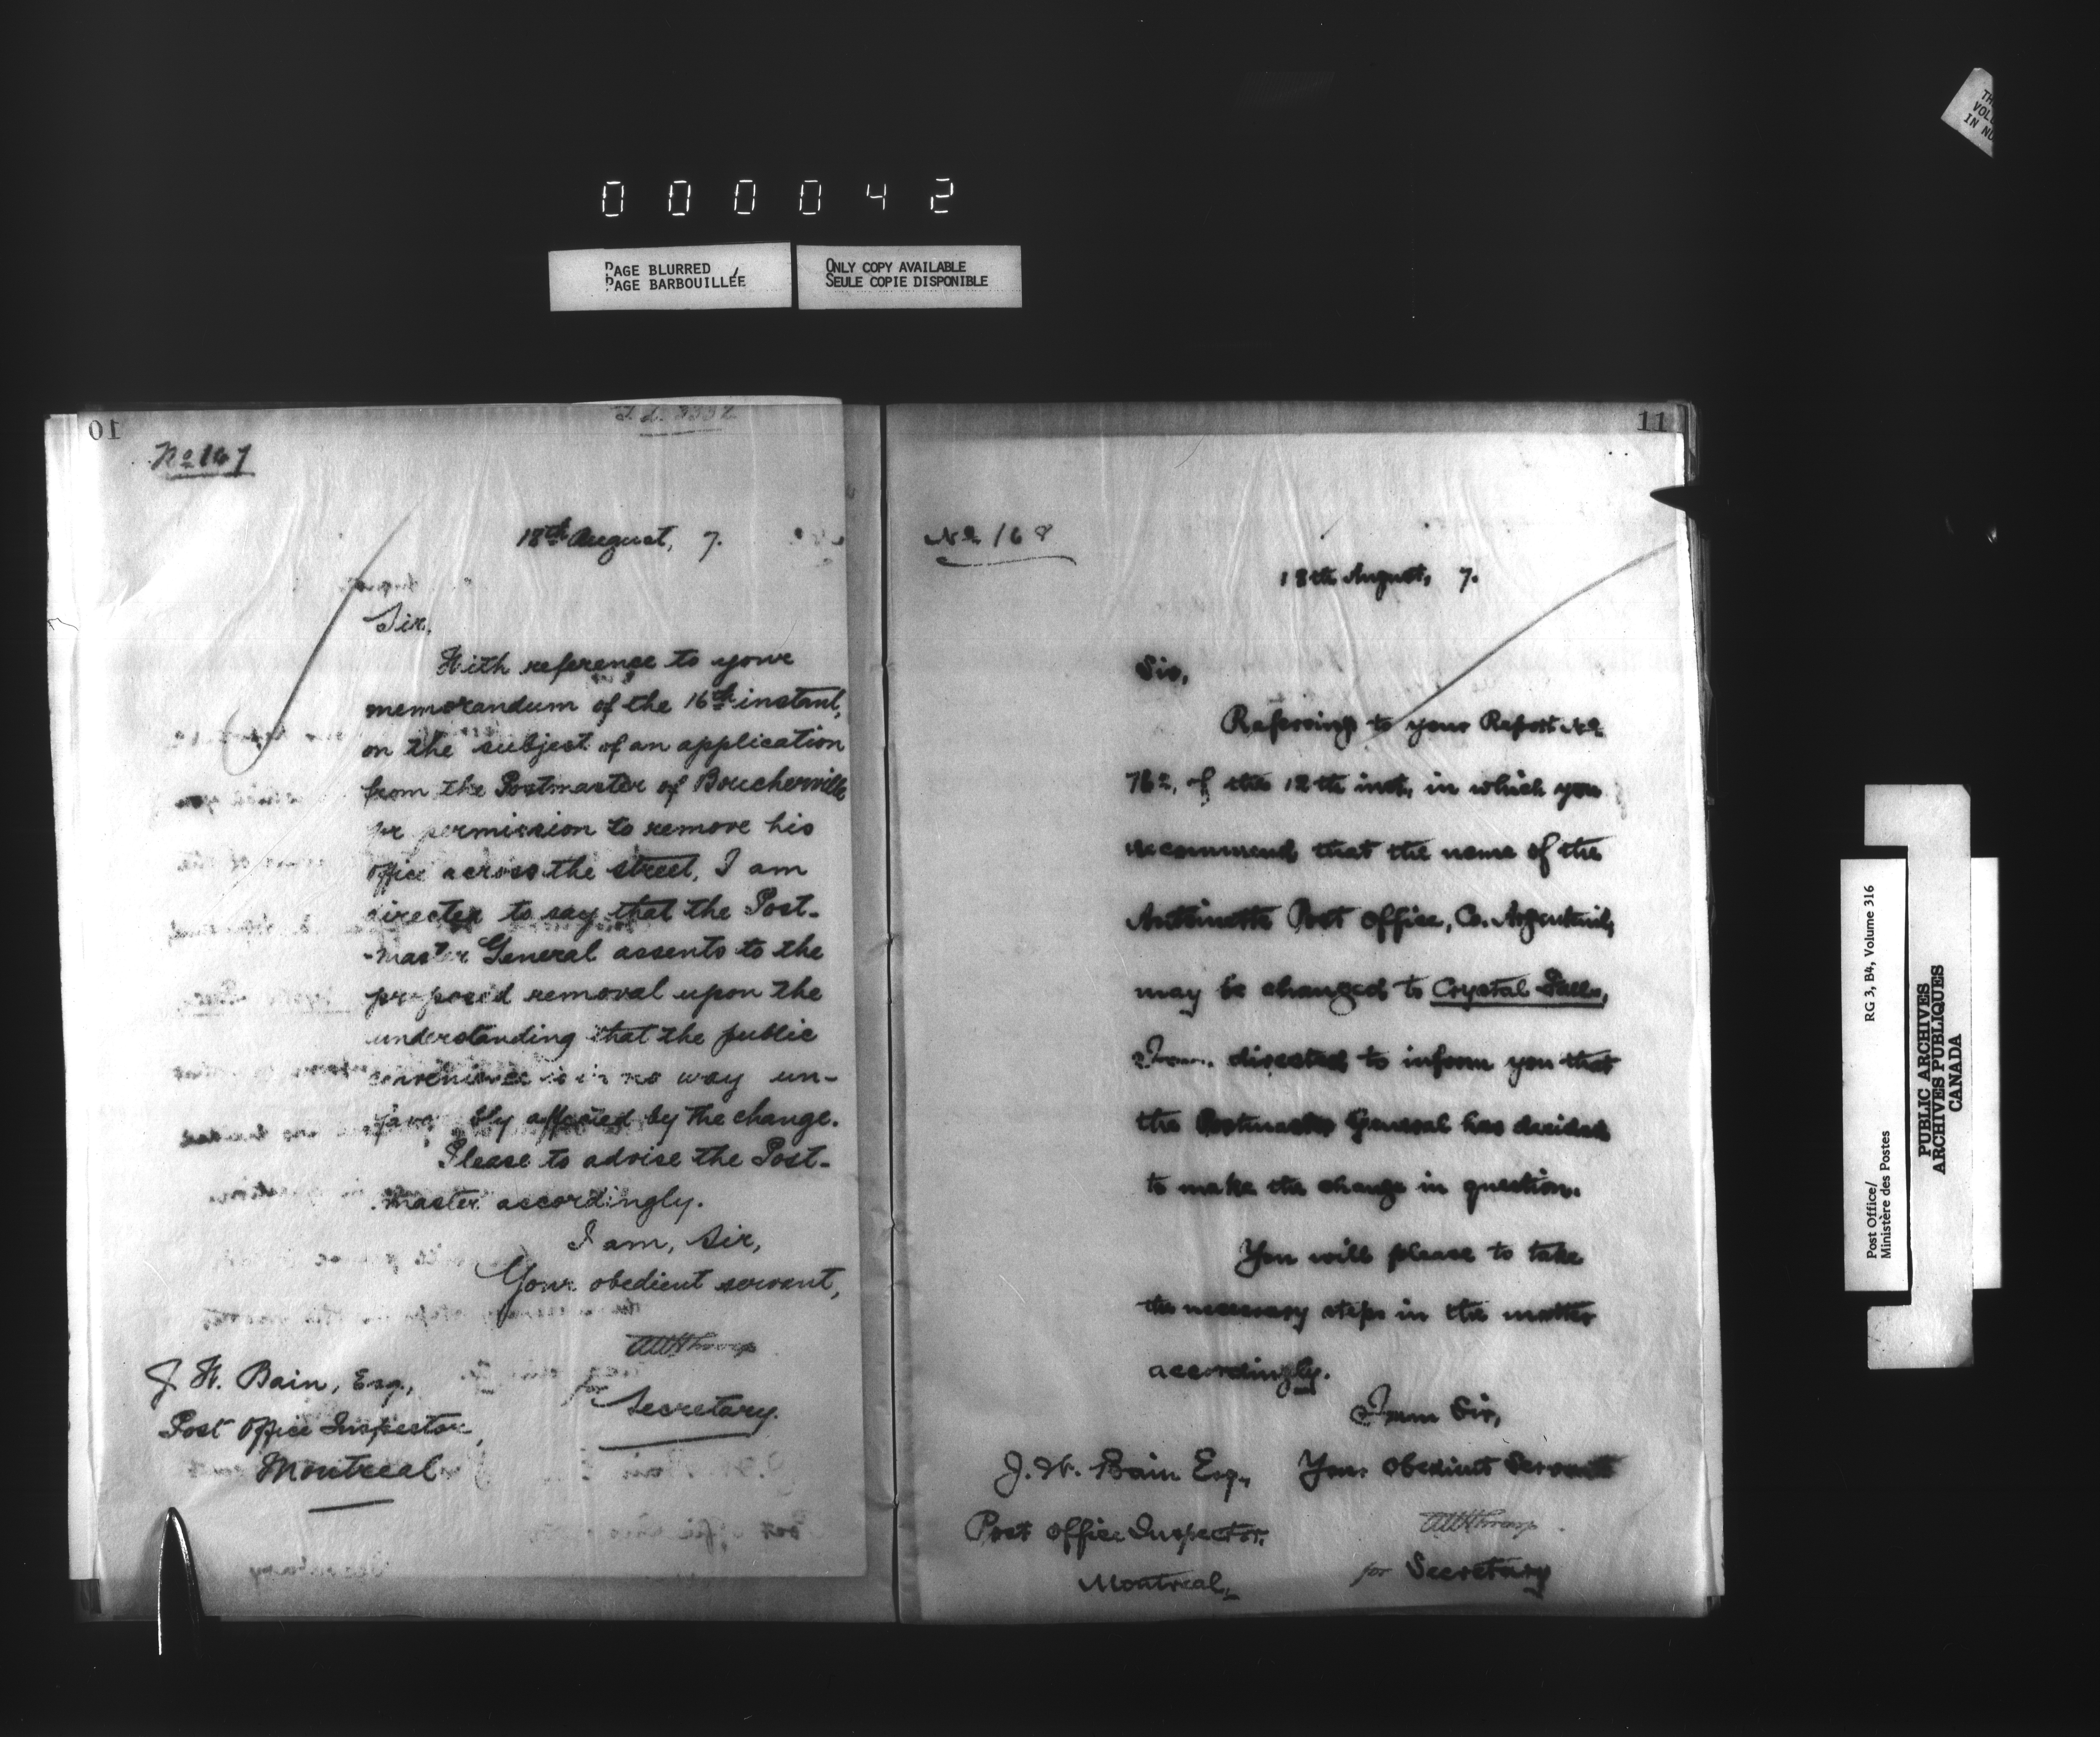 000042
PAGE BLURRED
PAGE BARBOUILLÉE
ONLY COPY AVAILABLE
SEULE COPIE DISPONIBLE
10
No 167
18th August, 7.
Sir,
With reference to your
memorandum of the 16th instant,
on the subject of an application
from the Postmaster of Boucherville
for permission to remove his
office across the street, I am
directed to say that the Post-
-master General assents to the
proposed removal upon the
understanding that the public
convenience is in no way un-
favorably affected by the change.
Please to advise the Post-
master accordingly.
I am, Sir,
Your obedient servant,
for
Secretary.
J. H. Bain, Esq.,
Post Office Inspector,
Montreal
11
No 168
18th August, 7.
Sir,
Referring to your Report No.
76 , of the 12th inst, in which you
recommend that the name of the
Antoinette Post Office, Co. Argenteuil,
may be changed to Crystal Falls,
I am directed to inform you that
the Postmaster General has decided
to make the change in question.
You will please to take
the necessary steps in the matter
accordingly.
I am Sir,
Your Obedient Servant
for Secretary
J. H. Bain Esq.,
Post Office Inspector.
Montreal,
TH
VOLU
IN NU
Post Office/ RG 3, B4, Volume 316
Ministère des Postes
PUBLIC ARCHIVES
ARCHIVES PUBLIQUES
CANADA